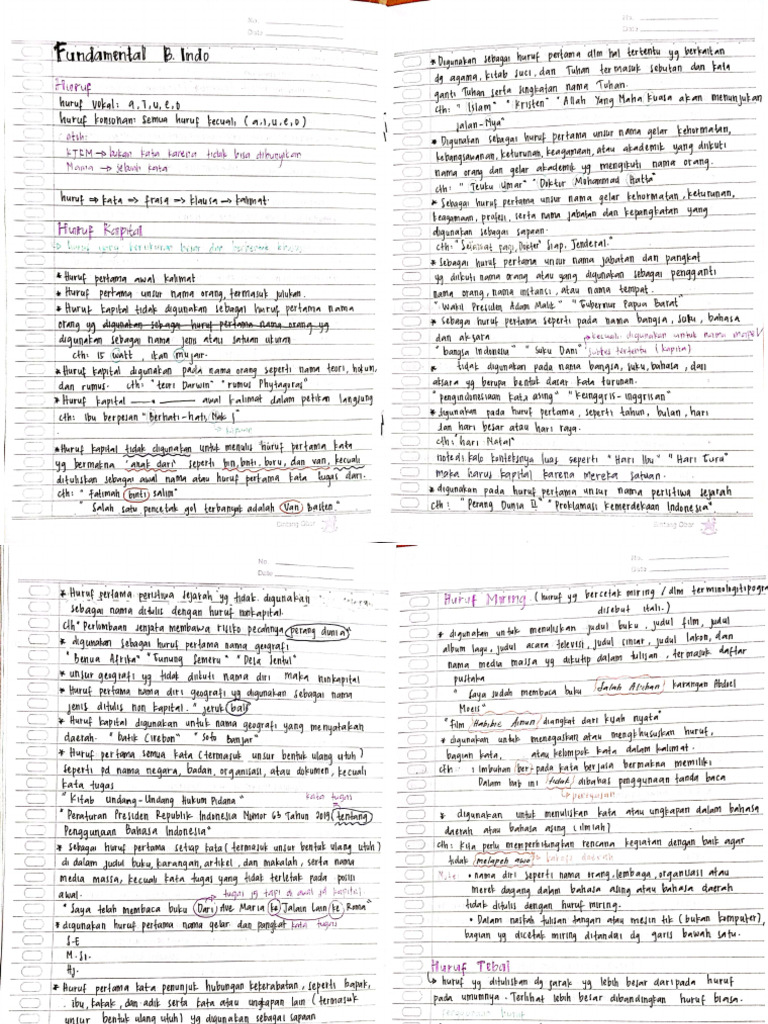 No.
Date
Fundamental B. Indo
Huruf
huruf vokal: a, i, u, e, o
huruf konsonan: semua huruf kecuali (a,i,u,e,o)
ctsh:
KTCM → bukan kata karena tidak bisa dibunyikan
Mama → sebuah kata
huruf → kata → frasa → klausa → kalimat
Huruf Kapital
↳ huruf yang berukuran besar dan
* Huruf pertama awal kalimat
* Huruf pertama unsur nama orang, termasuk julukan.
* Huruf kapital tidak digunakan sebagai huruf pertama nama
orang yg digunakan sebagai huruf pertama nama orang yg
digunakan sebagai nama jenis atau satuan ukuran
cth: 15 watt, ikan mujair.
* Huruf kapital digunakan pada nama orang seperti nama teori, hukum,
dan rumus. cth: "teori Darwin" "rumus Phytagoras"
* Huruf kapital awal kalimat dalam petikan langsung
cth: Ibu berpesan "Berhati-hati, Nak!"
* Huruf kapital tidak digunakan untuk menulis huruf pertama kata
yg bermakna 'anak dari' seperti bin, bnti, boru, dan van, kecuali
dituliskan sebagai awal nama atau huruf pertama kata tugas dari.
cth: "Fatimah binti Salim"
"Salah satu pencetak gol terbanyak adalah Van Basten."
Bintang Obor
No.
Date
* Digunakan sebagai huruf pertama dlm hal tertentu yg berkaitan
dg agama, kitab suci, dan Tuhan termasuk sebutan dan kata
ganti Tuhan serta singkatan nama Tuhan.
cth: "Islam" "Kristen" "Allah Yang Maha Kuasa akan menunjukan
jalan-Nya"
* Digunakan sebagai huruf pertama unsur nama gelar kehormatan,
kebangsawanan, keturunan, keagamaan, atau akademik yang diikuti
nama orang dan gelar akademik yg mengikuti nama orang.
cth: "Teuku Umar" "Doktor Mohammad Hatta"
* Sebagai huruf pertama unsur nama gelar kehormatan, keturunan,
keagamaan, profesi, serta nama jabatan dan kepangkatan yang
digunakan sebagai sapaan.
cth: "Selamat pagi, Dokter" Siap, Jenderal."
* Sebagai huruf pertama unsur nama jabatan dan pangkat
yg diikuti nama orang atau yang digunakan sebagai pengganti
nama orang, nama instansi, atau nama tempat.
"Wakil Presiden Adam Malik" "Gubernur Papua Barat"
* Sebagai huruf pertama seperti pada nama bangsa, suku, bahasa
dan aksara
kecuali digunakan untuk nama
"bangsa Indonesia" "Suku Dani"
(kapital)
* tidak digunakan pada nama bangsa, suku, bahasa, dan
aksara yg berupa bentuk dasar kata turunan.
"pengindonesiaan kata asing" "keinggris-inggrisan"
* digunakan pada huruf pertama, seperti tahun, bulan, hari
dan hari besar atau hari raya.
cth: "hari Natal"
noted: kalo konteksnya luas seperti "Hari Ibu" "Hari Guru"
maka harus kapital karena mereka satuan.
* digunakan pada huruf pertama unsur nama peristiwa sejarah
cth: "Perang Dunia II" "Proklamasi Kemerdekaan Indonesia"
Bintang Obor
No.
Date
* Huruf pertama peristiwa sejarah yg tidak digunakan
sebagai nama ditulis dengan huruf nonkapital.
cth "Perlombaan senjata membawa risiko pecahnya perang dunia"
* digunakan sebagai huruf pertama nama geografi
"Benua Afrika" "Gunung Semeru" "Desa Sentul"
* unsur geografi yg tidak diikuti nama diri maka nonkapital
* Huruf pertama nama diri geografi yg digunakan sebagai nama
jenis ditulis non kapital. "jeruk bali"
* Huruf kapital digunakan untuk nama geografi yang menyatakan
daerah. "Batik Cirebon" "Soto Banjar"
* Huruf pertama semua kata (termasuk unsur bentuk ulang utuh)
seperti pd nama negara, badan, organisasi, atau dokumen, kecuali
kata tugas
"Kitab Undang-Undang Hukum Pidana"
kata tugas
"Peraturan Presiden Republik Indonesia Nomor 63 Tahun 2019 tentang
Penggunaan Bahasa Indonesia"
* Sebagai huruf pertama setiap kata (termasuk unsur bentuk ulang utuh)
di dalam judul buku, karangan, artikel, dan makalah, serta nama
media massa, kecuali kata tugas yang tidak terletak pada posisi
awal.
tugas yg tapi di awal jd kapital
"Saya telah membaca buku Dari Ave Maria ke Jalan Lain ke Roma"
* digunakan huruf pertama nama gelar dan pangkat
kata tugas
S.E
M.Si.
Hj.
* Huruf pertama kata penunjuk hubungan kekerabatan, seperti bapak,
ibu, kakak, dan adik serta kata atau ungkapan lain (termasuk
unsur bentuk ulang utuh) yg digunakan sebagai sapaan
No.
Date
Huruf Miring (huruf yg bercetak miring / dlm terminologi tipogra
disebut itali.)
* digunakan untuk menuliskan judul buku, judul film, judul
album lagu, judul acara televisi, judul siniar, judul lakon, dan
nama media massa yg dikutip dalam tulisan, termasuk daftar
pustaka
"Saya sudah membaca buku Salah Asuhan karangan Abdoel
Moeis"
"film Habibie Ainun diangkat dari kisah nyata"
* digunakan untuk menegaskan atau mengkhususkan huruf,
bagian kata, atau kelompok kata dalam kalimat.
cth: : Imbuhan ber- pada kata berjasa bermakna memiliki
Dalam bab ini tidak dibahas penggunaan tanda baca
↳ penegasan
* digunakan untuk menuliskan kata atau ungkapan dalam bahasa
daerah atau bahasa asing (ilmiah)
cth: Kita perlu memperhitungkan rencana kegiatan dengan baik agar
tidak melapeh awo
bahasa daerah
• nama diri seperti nama orang, lembaga, organisasi atau
merek dagang dalam bahasa asing atau bahasa daerah
tidak ditulis dengan huruf miring.
• Dalam naskah tulisan tangan atau mesin tik (bukan komputer),
bagian yg dicetak miring ditandai dg garis bawah satu.
Huruf Tebal
↳ huruf yg dituliskan dg jarak yg lebih besar daripada huruf
pada umumnya. Terlihat lebih besar dibandingkan huruf biasa.